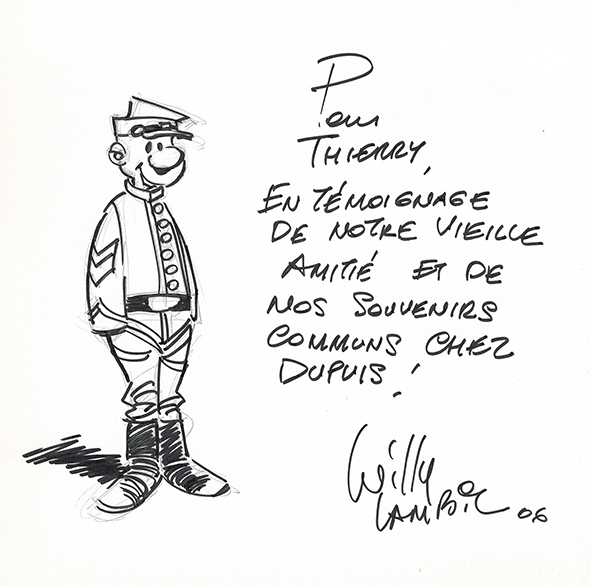 Pour
THIERRY,
EN TÉMOIGNAGE
DE NOTRE VIEILLE
AMITIÉ ET DE
NOS SOUVENIRS
COMMUNS CHEZ
DUPUIS!
Willy
LAMBIL 06